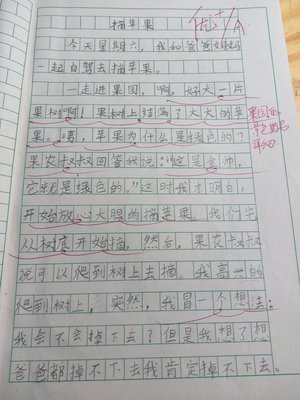 摘苹果
优+/A
今天星期六，我和爸爸妈妈
一起自驾去摘苹果。
一走进果园，啊，好大一片
果树啊！果树上结满了大大的苹
果。咦，苹果为什么是绿色的？
果农叔叔回答我说：“这是
它就是绿色的。”这时我才明白，
开始放心大胆的摘苹果。我们先
从树底开始摘，然后，果农叔叔
说可以爬到树上去摘。我高兴的
爬到树上，突然，我冒一个想法：
我会不会掉下去？但是我想了想
爸爸都掉不下去我肯定掉不下去。
果园的
景色